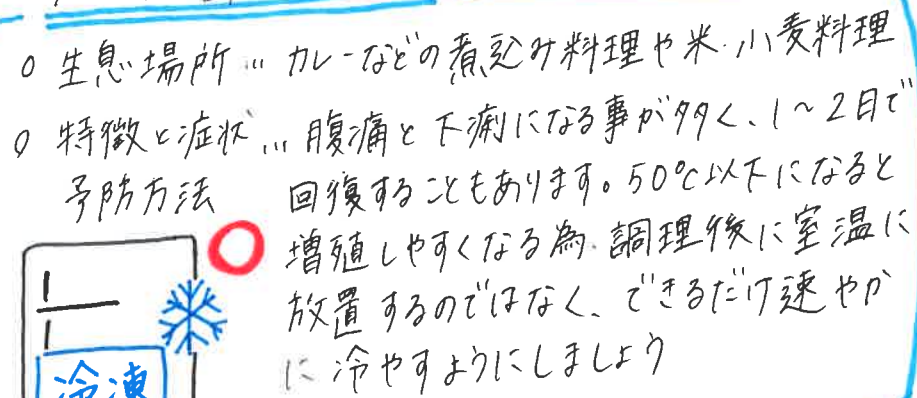 ○ 生息場所… カレーなどの煮込み料理や米.小麦料理
○ 特徴と症状… 腹痛と下痢になる事が多く、1～2日で
予防方法 回復することもあります。50℃以下になると
増殖しやすくなる為.調理後に室温に
放置するのではなく、できるだけ速やか
に冷やすようにしましょう
冷凍